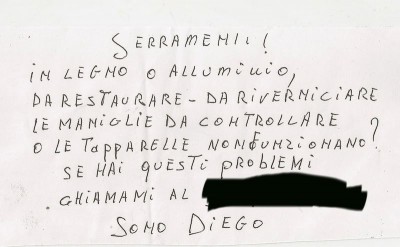 SERRAMENIL!
IN LEGNO O ALLUMINIO,
DA RESTAURARE - DA RIVERNICIARE
LE MANIGLIE DA CONTROLLARE
O LE TAPPARELLE NON FUNZIONANO?
SE HAI QUESTI PROBLEMI
. CHIAMAMI AL
SONO DIEGO